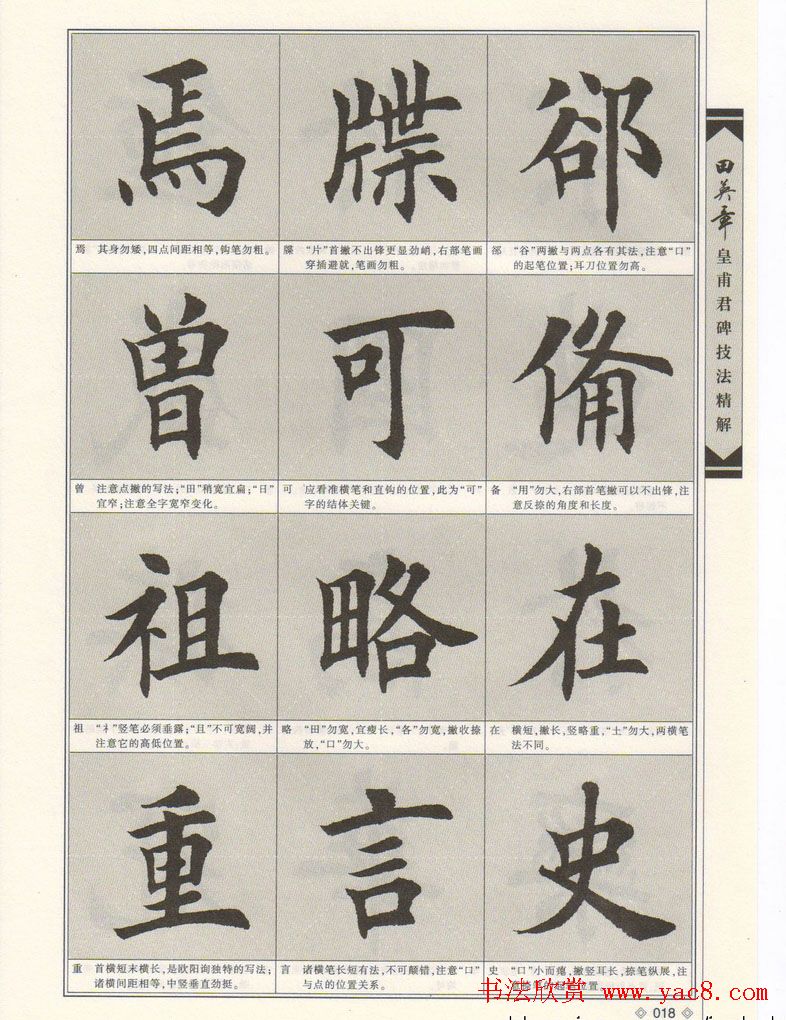 焉
牒
郤
焉 其身勿矮,四点间距相等,钩笔勿粗。
牒 “片”首撇不出锋更显劲峭,右部笔画
穿插避就,笔画勿粗。
郤 “谷”两撇与两点各有其法,注意“口”
的起笔位置;耳刀位置勿高。
曾
可
备
曾 注意点撇的写法;“田”稍宽宜扁;“日”
宜窄;注意全字宽窄变化。
可 应看准横笔和直钩的位置,此为“可”
字的结体关键。
备 “用”勿大,右部首笔撇可以不出锋,注
意反捺的角度和长度。
祖
略
在
祖 “礻”竖笔必须垂露;“且”不可宽阔,并
注意它的高低位置。
略 “田”勿宽,宜瘦长,“各”勿宽,撇收捺
放,“口”勿大。
在 横短,撇长,竖略重,“土”勿大,两横笔
法不同。
重
言
史
重 首横短末横长,是欧阳询独特的写法;
诸横间距相等,中竖垂直劲挺。
言 诸横笔长短有法,不可颠错,注意“口”
与点的位置关系。
史 “口”小而瘪,撇竖耳长,捺笔纵展,注
意捺笔的起笔位置。
田英章
皇甫君碑技法精解
书法欣赏 www.yac8.com
018